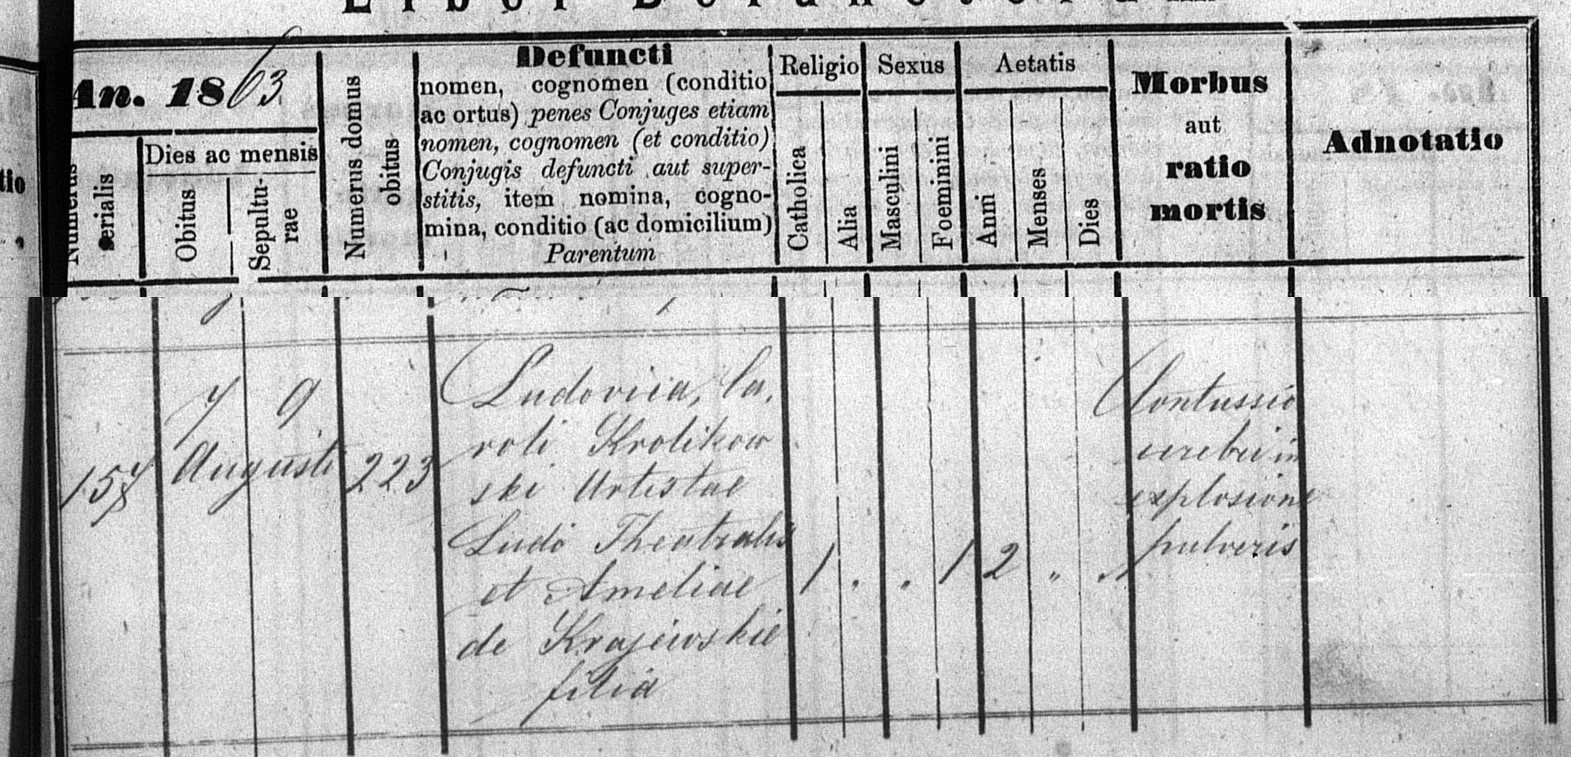 Liber Defunctorum
An. 1863
Numerus serialis
Dies ac mensis
Obitus
Sepultu-
rae
Numerus domus
obitus
Defuncti
nomen, cognomen (conditio
ac ortus) penes Conjuges etiam
nomen, cognomen (et conditio)
Conjugis defuncti aut super-
stitis, item nomina, cogno-
mina, conditio (ac domicilium)
Parentum
Religio
Catholica
Alia
Sexus
Masculini
Foeminini
Aetatis
Anni
Menses
Dies
Morbus
aut
ratio
mortis
Adnotatio
157
7 9
Augusti
223
Ludovica, Ca,
roli Krolikow
ski Artistae
Ludo Theatralis
et Ameliae
de Krajewskie
filia
1 . . 1 2 „ „
Contussio
cerebri in
explosione
pulveris